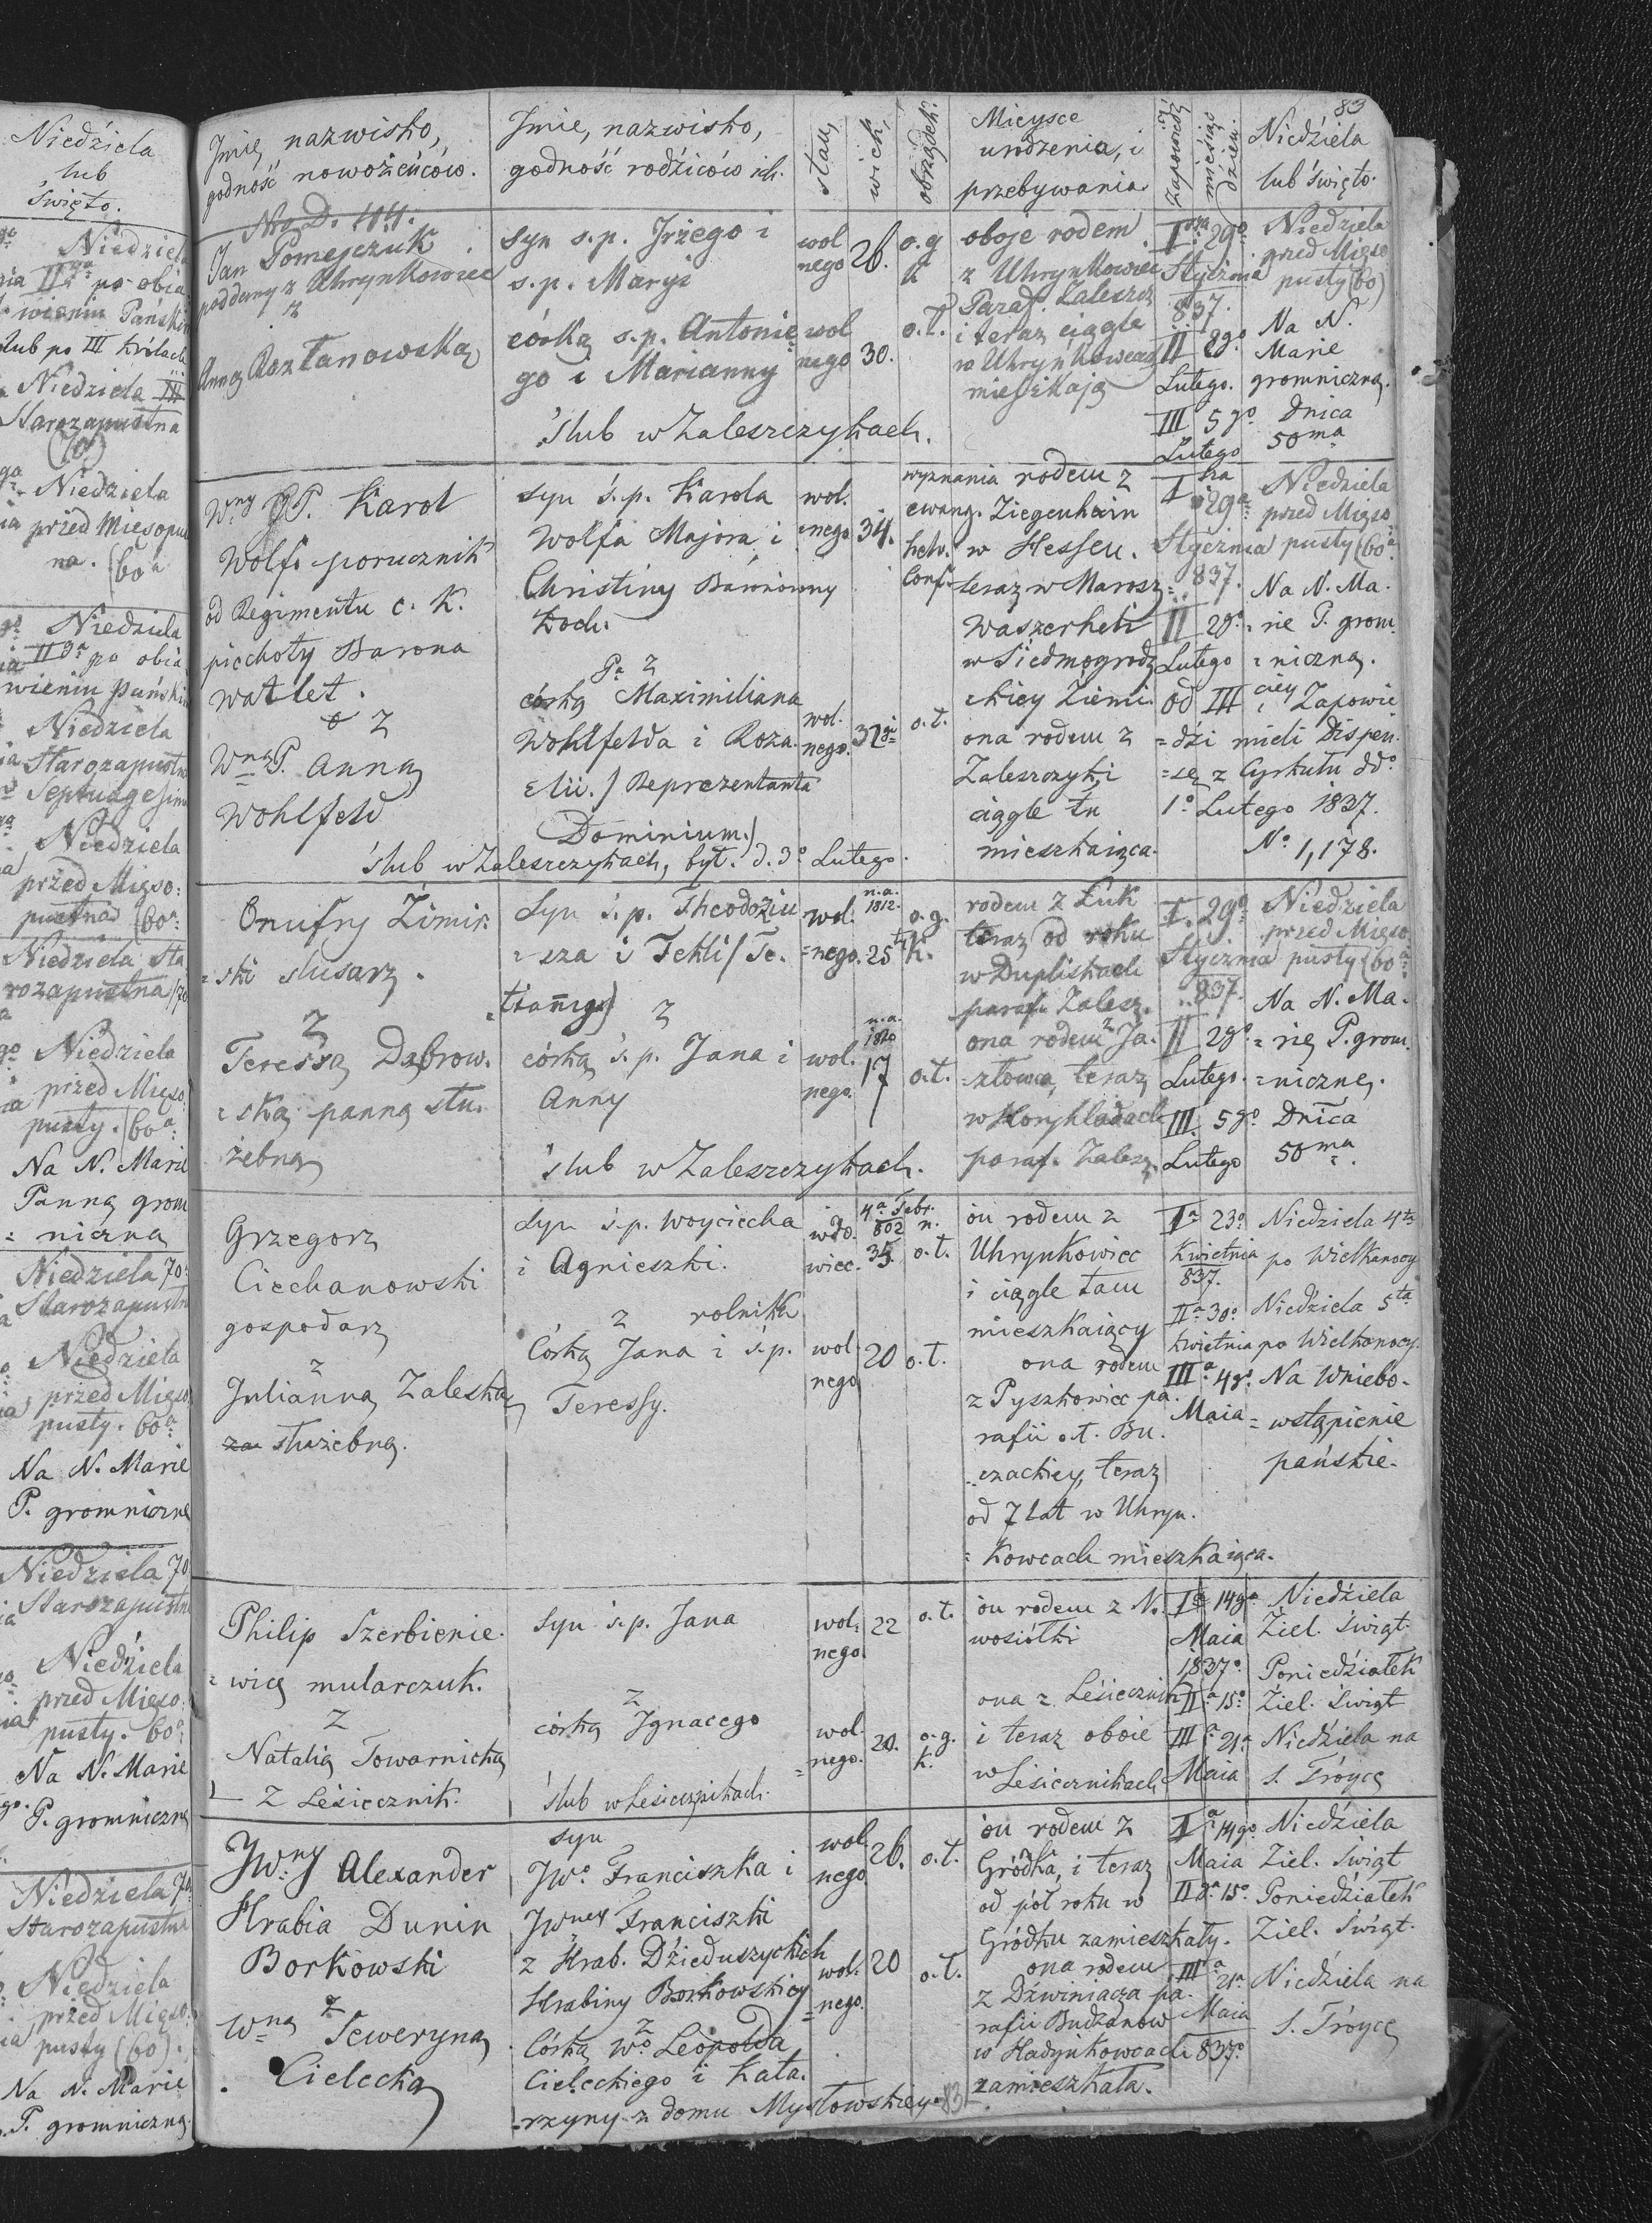 Niedźiela
lub
święto.
Niedziela
IIga po obia
wieniu Pański
lub po III Królach
Niedziela III
Starozapustna
(70)
Niedziela
przed Miesopu
na. (60a
Niedziela
II ga po obia
wieniu Pański
Niedziela
Starozapustna
Septuagesima
Niedziela
przed Mięso:
pustna (60a:
Niedziela Sta
rozapustna (70
Niedziela
przed Mięso
pusty. (60a:
Na N. Marie
Panną grom
= niczna
Niedziela 70.
Starozapustn
Niedziela
przed Mięso
pusty. 60a:
Na N. Marie
P. gromniczne
Niedziela 70
Starozapustn
Niedźiela
przed Mięso.
pusty. 60a:
Na N. Marie
P. gromniczną
Niedziela 70
Starozapustna
Niedziela
przed Mięso:
pusty (60).
Na N. Marie
P. gromniczną.
83
Jmię, nazwisko,
godność nowożeńców.
Jmie, nazwisko,
godność rodźiców ich.
stan,
wiek,
obrządek.
Mieysce
urodzenia, i
przebywania
Zapowiedź
miesiąc
dźień.
Niedźiela
lub święto.
Nro D. 44.
Jan Pomejczuk
poddany z Uhrynkowiec
z
Anną Rozłanowską
syn s.p. Jrżego i
s.p. Maryi
córką s.p. Antonie
go i Marianny
ślub w Zaleszczykach.
wol
nego
26.
o.g
k
wol
nego
30.
o.t.
oboje rodem
z Uhrynkowiec
Paraf. Zaleszcz
i teraz ciągle
w Uhrynkowcach
mieszkają
Isza 29o
Stycznia
837.
II 2go
Lutego.
III 5go
Lutego
Niedziela
przed Mięso
pusty (60)
Na N.
Marie
gromniczną.
Dnica
50ma
Wny JP. Karol
Wolf porucznik
od Regimentu c. K.
piechoty Barona
Watlet.
z
Wną P. Anną
Wohlfeld
syn ś.p. Karola
Wolfa Majora i
Christiny Baronowny
Koch.
Pa z
córką Maximiliana
Wohlfelda i Roza.
elii. / Reprezentanta
Dominium.)
ślub w Zaleszczykach, był. d. 3o Lutego.
wol.
=nego
34.
wyznania
ewang.
helv.
Conf.
wol.
nego.
32
o.t.
rodem z
Ziegenhain
w Hessen.
teraz w Marosz=
Waszerheli
w Siedmogrodz
kiey Ziemi
ona rodem z
Zaleszczyk, i
ciągle tu
mieszkaiąca.
I sza
29a
Stycznia
837.
II 2go
Lutego
od III ciey Zapowie
=dźi mieli Dispen
=sę z Cyrkułu ddo
1o Lutego 1837.
No 1,178.
Niedziela
przed Mięso
pusty (60a.
Na N. Ma.
rie P. grom
=niczną.
Onufry Zimir.
=ski slusarz.
z
Teressą Dąbrow.
=ską panną słu.
żebną
Syn ś.p. Theodoziu
=sza i Tekli /Te.
z
córką ś.p. Jana i
Anny
ślub w Zaleszczykach.
wol.
=nego.
n.a.
1812.
25
o.g.
k.
wol.
nego.
n.a.
1820
17
o.t.
rodem z Łuk
teraz od roku
w Duplishach
paraf. Zalesz.
ona rodem z Ja.
=złowca, teraz
w Horyhladach
paraf. Zalesz.
I. 29o
Stycznia
837.
II 2go.
Lutego.
III. 5go.
Lutego
Niedźiela
przed Mięso
pusty (60a.
Na N. Ma.
=rię P. grom.
=niczne.
Dnica
50ma.
Grzegorz
Ciechanowski
gospodarz
z
Julianną Zaleską
za służebną.
Syn ś.p. Woyciecha
i Agnieszki.
z rolnika
Córką Jana i ś.p.
Teressy.
wdo.
wiec.
4a Febr.
802 n.
35.
o.t.
wol
nego
20
o.t.
on rodem z
Uhrynkowiec
i ciągle tam
mieszkaiący
ona rodem
z Pyszkowiec pa.
rafii o.t. Bu.
czackiey, teraz
od 7 lat w Uhryn.
=kowcach mieszkaiąca.
Ia 23o
Kwietnia
837.
IIa 30o
Kwietnia
IIIa 4go.
Maia
Niedziela 4ta
po Wielkanocy
Niedźiela 5ta
po Wielkanocy.
Na Wniebo-
=wstąpienie
pańskie.
Philip Szerbienie.
=wicz mularczuk.
z
Natalią Towarnicką
z Lesiecznik.
Syn ś.p. Jana
z
córką Jgnacego
ślub w Lesiecznikach.
wol=
nego.
22
o.t.
wol.
=nego.
20.
o.g.
k.
on rodem z No.
wosiółki
ona z Leśiecznik
i teraz oboie
w Leśiecznikach
Ia 14ga
Maia
1837o.
IIa 15o
IIIa 21a
Maia
Niedźiela
Ziel. świąt.
Poniedźiałek
Ziel. świąt
Niedźiela na
s. Tróycę
JWny Alexander
Hrabia Dunin
Borkowski
z
Wną Seweryną
Cielecką
syn
JWo Franciszka i
JWney Franciszki
z Hrab. Dźieduszyckich
Hrabiny Borkowskiey
z
Córką Wo Leopolda
Cieleckiego i Kata.
=rzyny z domu Mysłowskiey.
wol
nego
26.
o.t.
wol.
=nego.
20
o.t.
on rodem z
Gródka, i teraz
od pół roku w
Gródku zamieszkały.
ona rodem
z Dźwiniacza pa.
rafii Budzanow
w Hadynkowcach
zamieszkała.
Ia 14go
Maia
IIga 15o
IIIa 21a
Maia
837o
Niedźiela
Ziel. świąt
Poniedźiałek
Ziel. świąt.
Niedźiela na
s. Tróycę
83